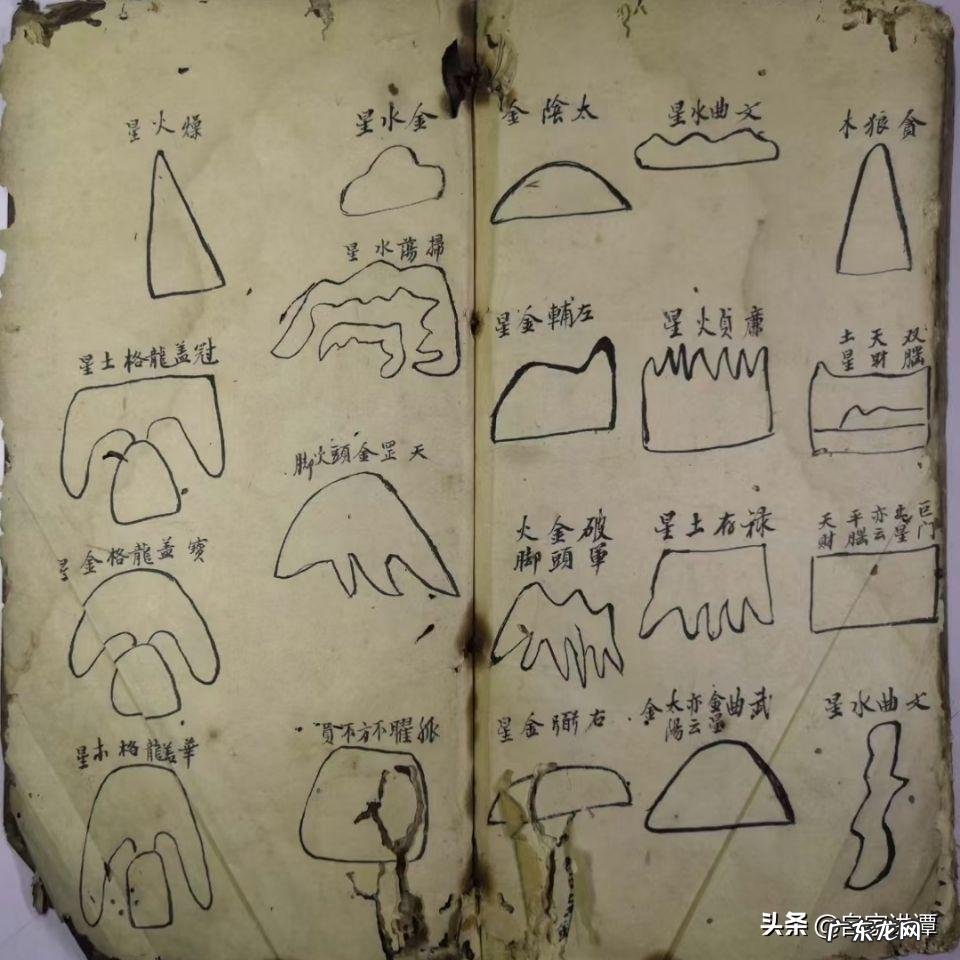 貪狼木
双腦
天財
土星
巨门
星
亦云
平腦
天財
文曲水星
文曲水星
廉貞火星
禄存土星
武曲
金星
亦云
太陽
金
太陰金
左輔金星
破軍
金頭
火脚
右弼金星
金水星
掃蕩水星
天罡金頭火脚
孤曜不方不員
燥火星
冠盖龍格土星
寶盖龍格金星
華盖龍格木星
头条 @客家洪谭
广东龙网